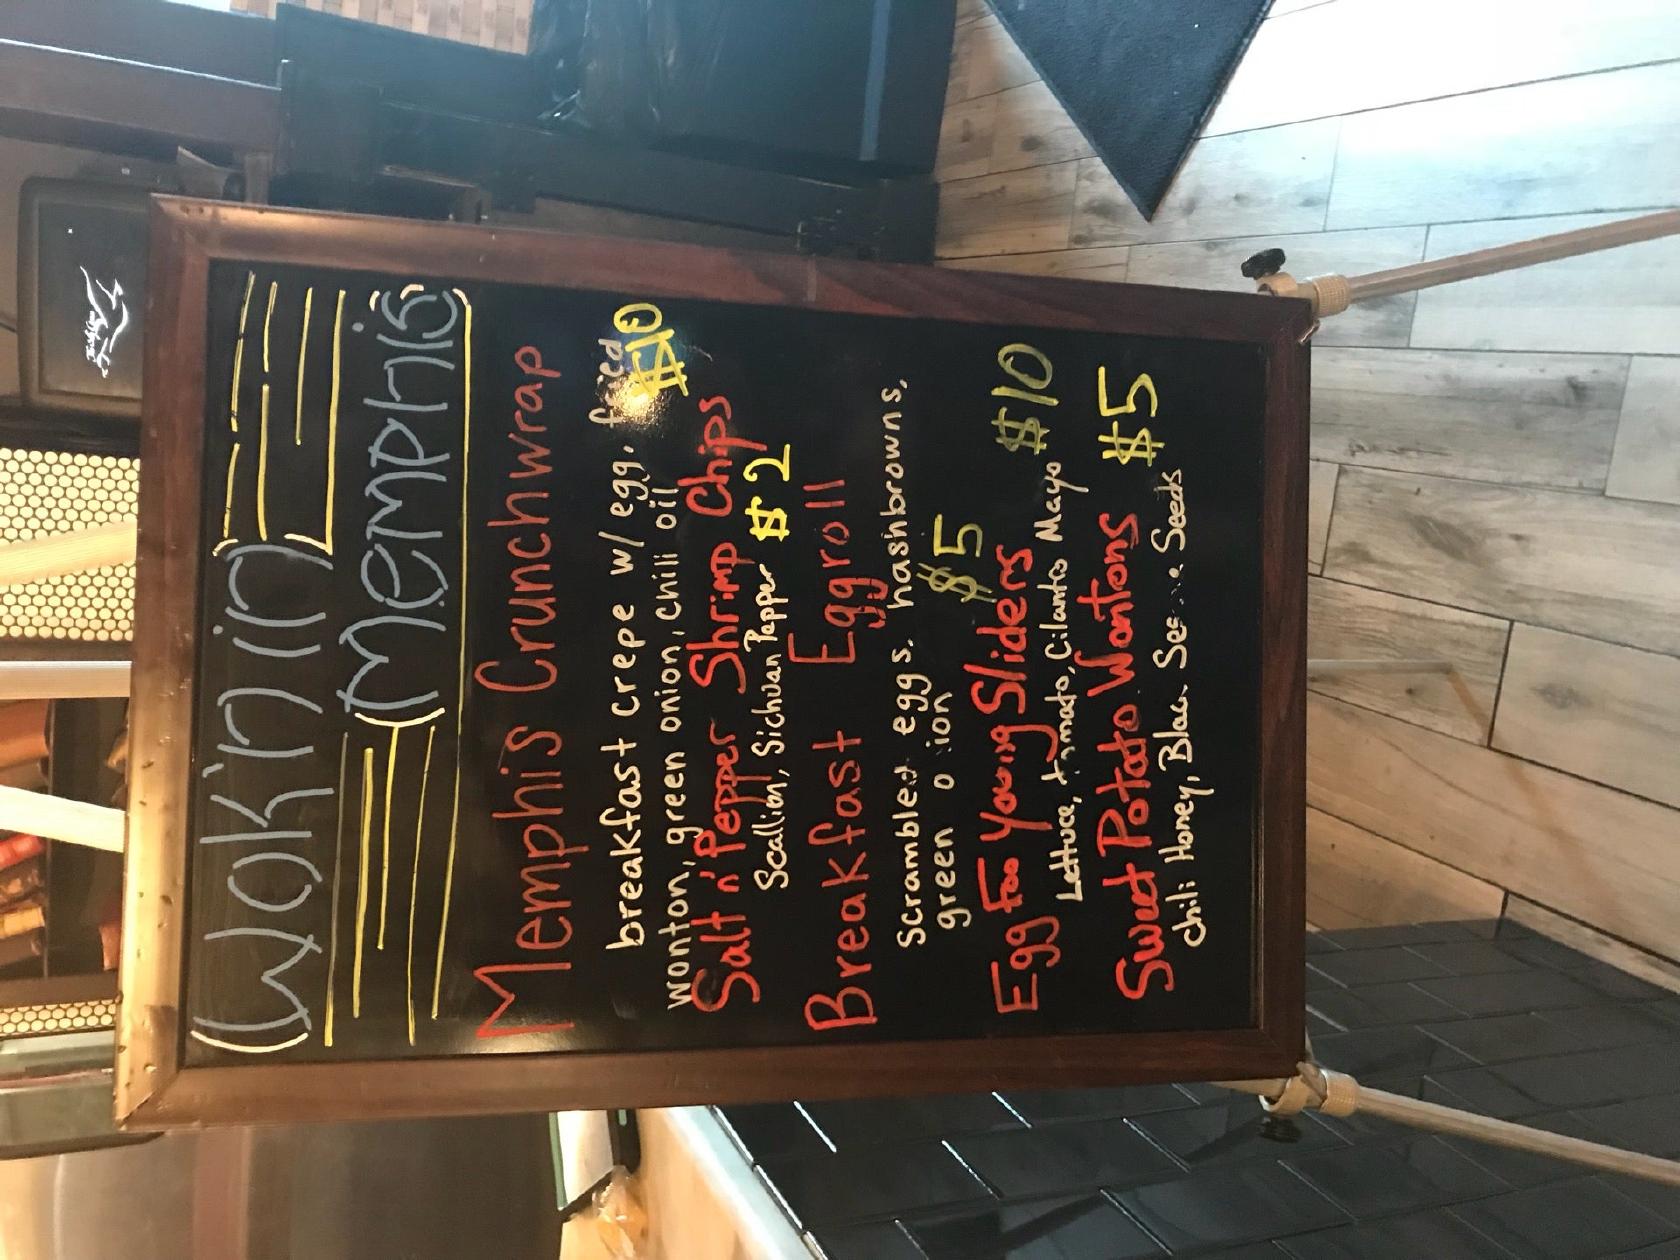 Wok'n in
Memphis
Memphis Crunchwrap
breakfast crepe w/ egg, fried
wonton, green onion, chili oil
$10
Salt n' Pepper Shrimp Chips
Scallion, Sichuan Pepper $2
Breakfast Eggroll
Scrambled eggs, hashbrowns,
green onion $5
Egg Foo Young Sliders $10
Lettuce, tomato, Cilantro Mayo
Sweet Potato Wontons $5
Chili Honey, Black Sesame Seeds